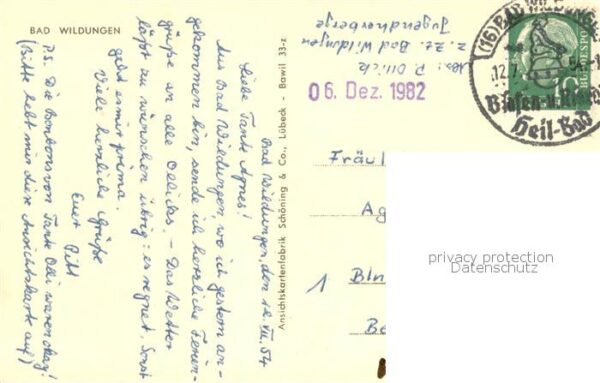 BAD WILDUNGEN
Bad Wildungen, den 12. VII. 54
Liebe Tante Agnes!
Aus Bad Wildungen, wo ich gestern an-
gekommen bin, sende ich herzliche Ferien-
grüße an alle Ollicks. – Das Wetter
läßt zu wünschen übrig: es regnet. Sonst
geht es mir prima.
Viele herzliche Grüße
Euer Pitt
P.S. Die Bonbons von Tante Olli waren okay!
(Bitte hebt mir diese Ansichtskarte auf)
Ansichtskartenfabrik Schöning & Co., Lübeck - Bawil 33-z
Abs: P. Ollick
z. Zt. Bad Wildungen
Jugendherberge
06. Dez. 1982
(16) BAD WILDUNGEN
12.7.54
Blasen-u. Nieren
Heil-Bad
10
BUNDESPOST
Fräul
Ag
1 Bln
Be
privacy protection
Datenschutz